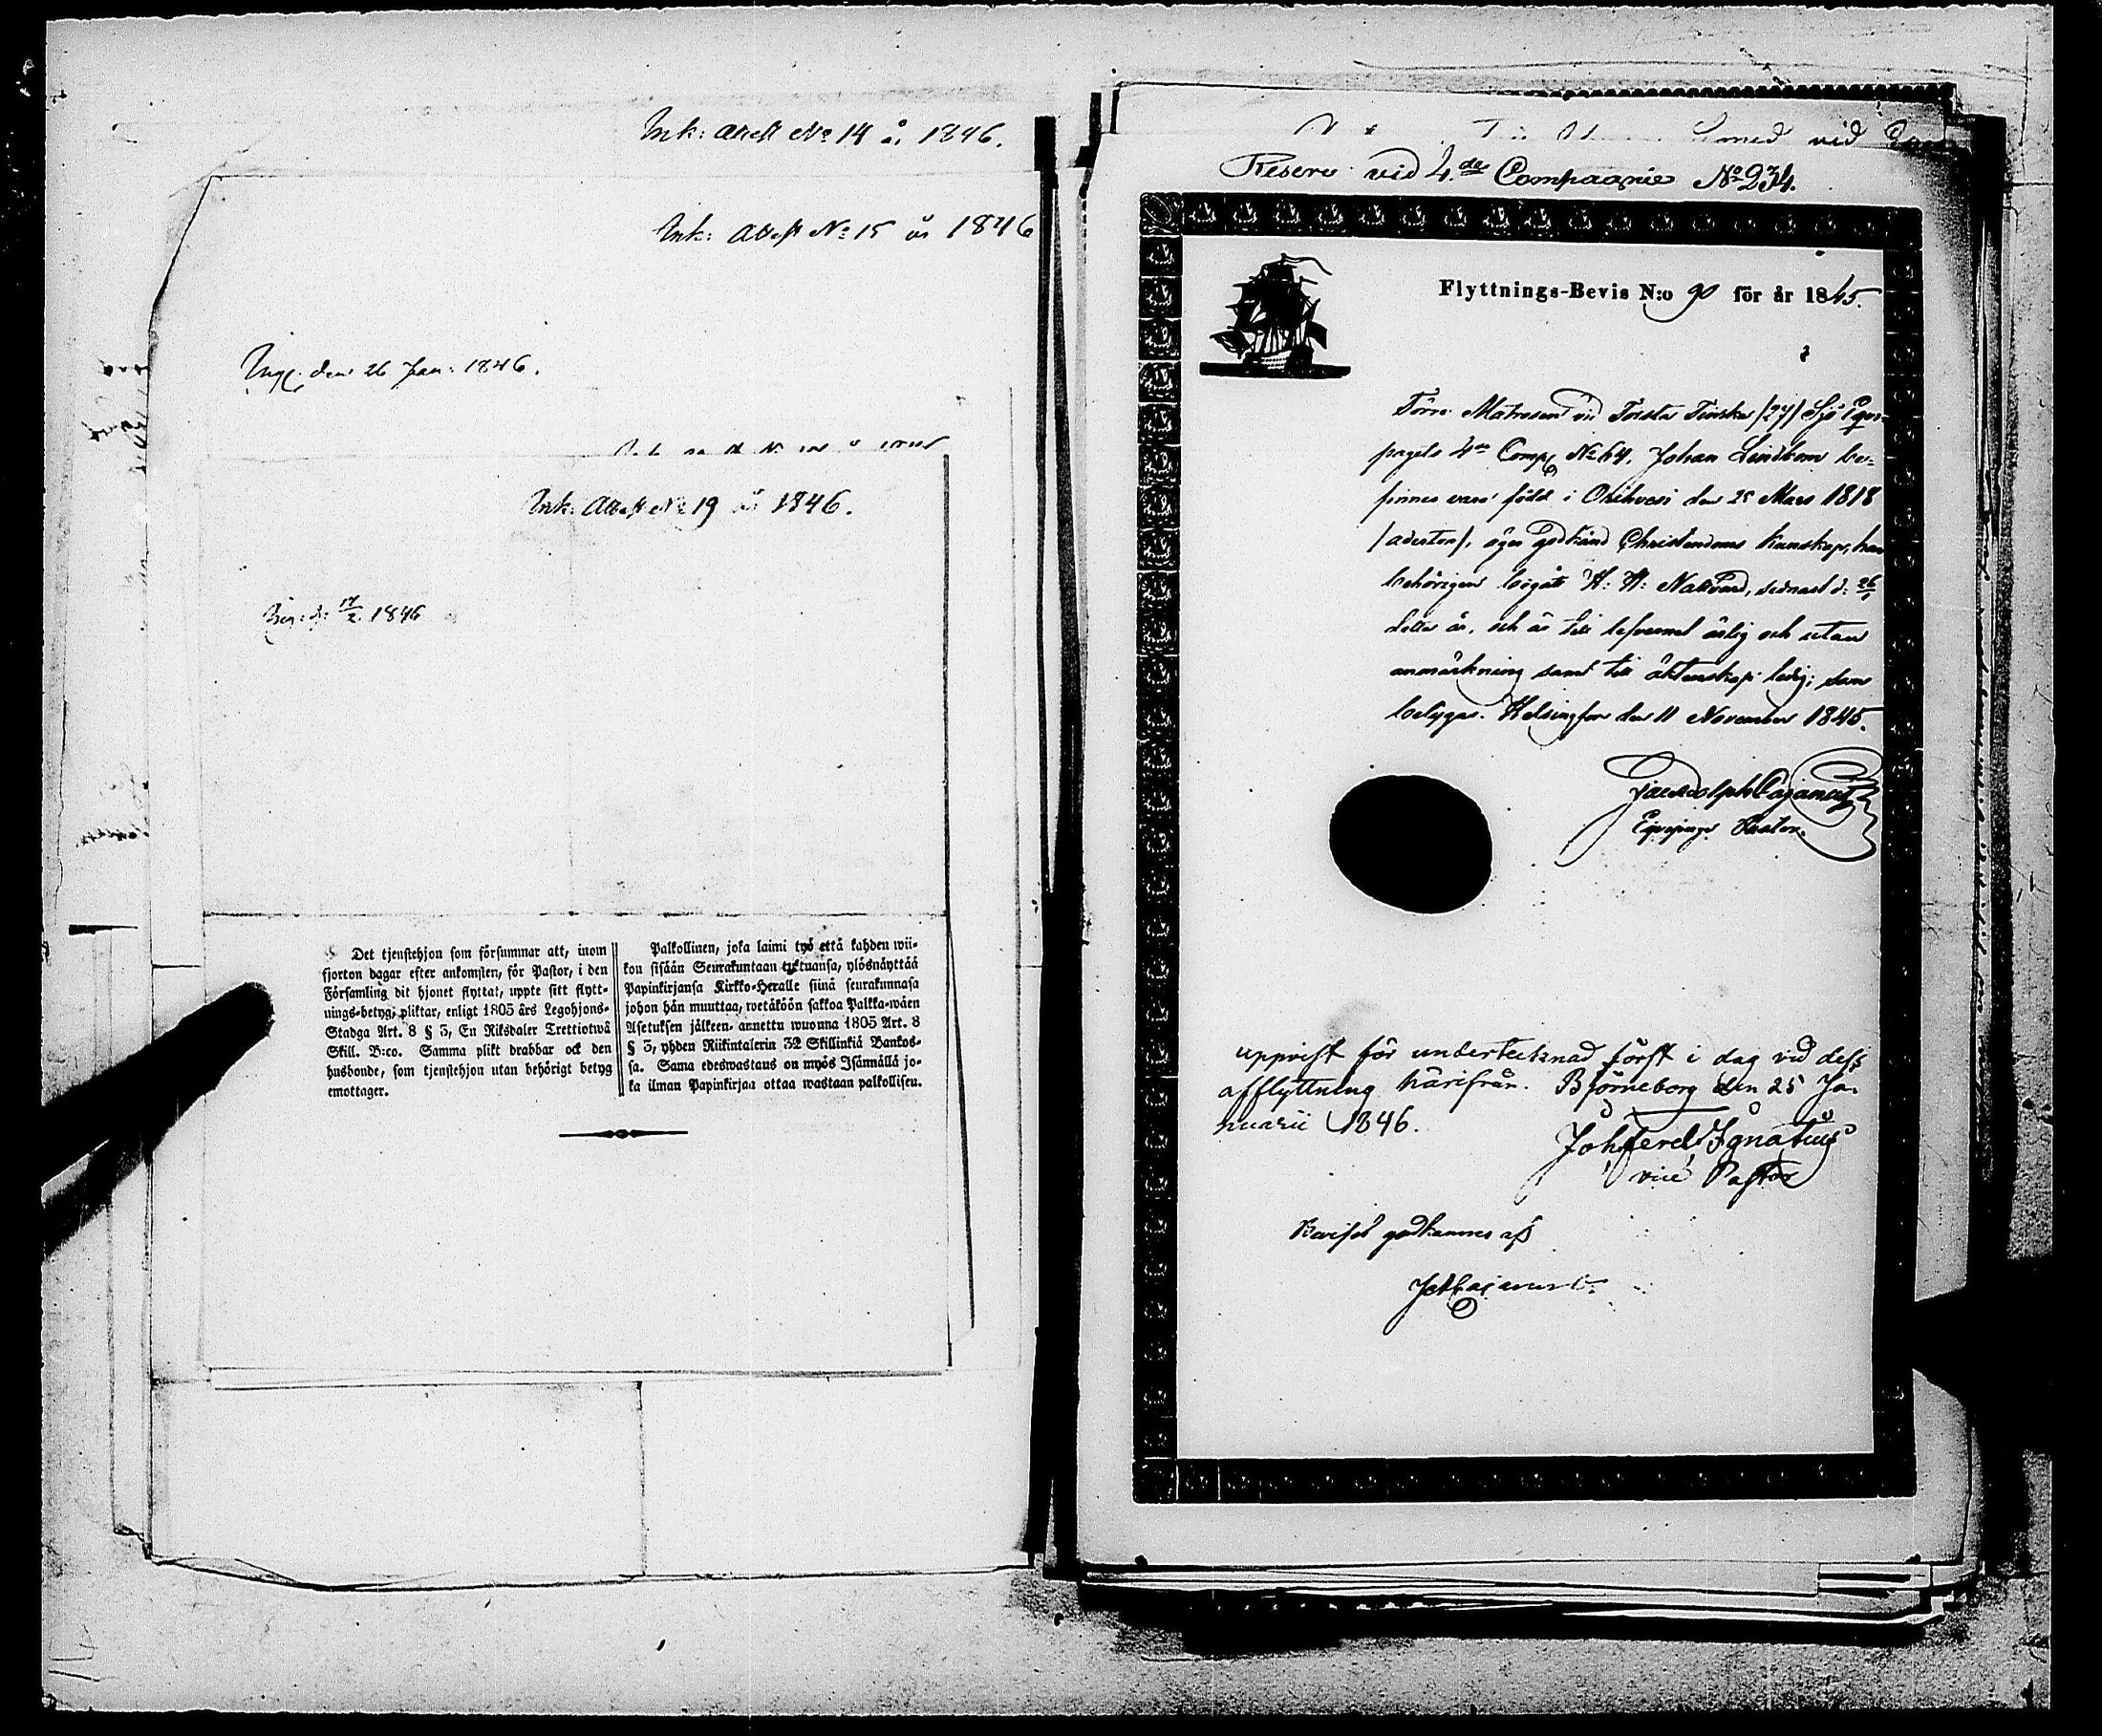 Ink: Attest No 14 år 1846.
Ink: Attest No 15 år 1846
Ing. den 26 Jan: 1846.
Ink: Attest No 19 år 1846.
Ing. d: 17/2 1846
Det tjenstehjon som försummar att, inom
fjorton dagar efter ankomsten, för Pastor, i den
Församling dit hjonet flyttat, uppte sitt flytt-
nings-betyg, pliktar, enligt 1805 års Legohjons-
Stadga Art. 8 § 3, En Riksdaler Trettiotwå
Skill. B:co. Samma plikt drabbar ock den
husbonde, som tjenstehjon utan behörigt betyg
emottager.
Palkollinen, joka laimi lyö että kahden wii-
kon sisään Seurakuntaan tultuansa, ylösnäyttää
Papinkirjansa Kirkko-Herralle siinä seurakunnasa
johon hän muuttaa, wetäköön sakkoa Palkka-wäen
Asetuksen jälkeen annettu wuonna 1805 Art. 8
§ 3, yhden Riikintalerin 32 Skillinkiä Bankos-
sa. Sama edeswastaus on myös Isännällä jo-
ka ilman Papinkirjaa ottaa wastaan palkollisen.
vid
Reserv vid 4.de Compagnie No 234.
Flyttnings-Bevis N:o 90 för år 1845.
Förre Matrosen vid Första Finska /27/ Sjö Equi-
pagets 4de Comp. No 64, Johan Lindbom be-
finnes vara född i Orihvesi den 25 Mars 1818
/aderton/, äger godkänd Christendoms kunskap, har
behörigen begått H: H: Nattvard, sednast d: 26/
detta år, och är till lefvernet ärlig och utan
anmärkning samt till äktenskap ledig; som
betygas. Helsingfors den 11 November 1845.
Jac Adolph Cajanus
Equipage Pastor.
uppvist för undertecknad först i dag vid dess
afflyttning härifrån. Björneborg den 25 Ja-
nuarii 1846.
Joh Ferd Ignatius
vice Pastor
Beviset godkännes af